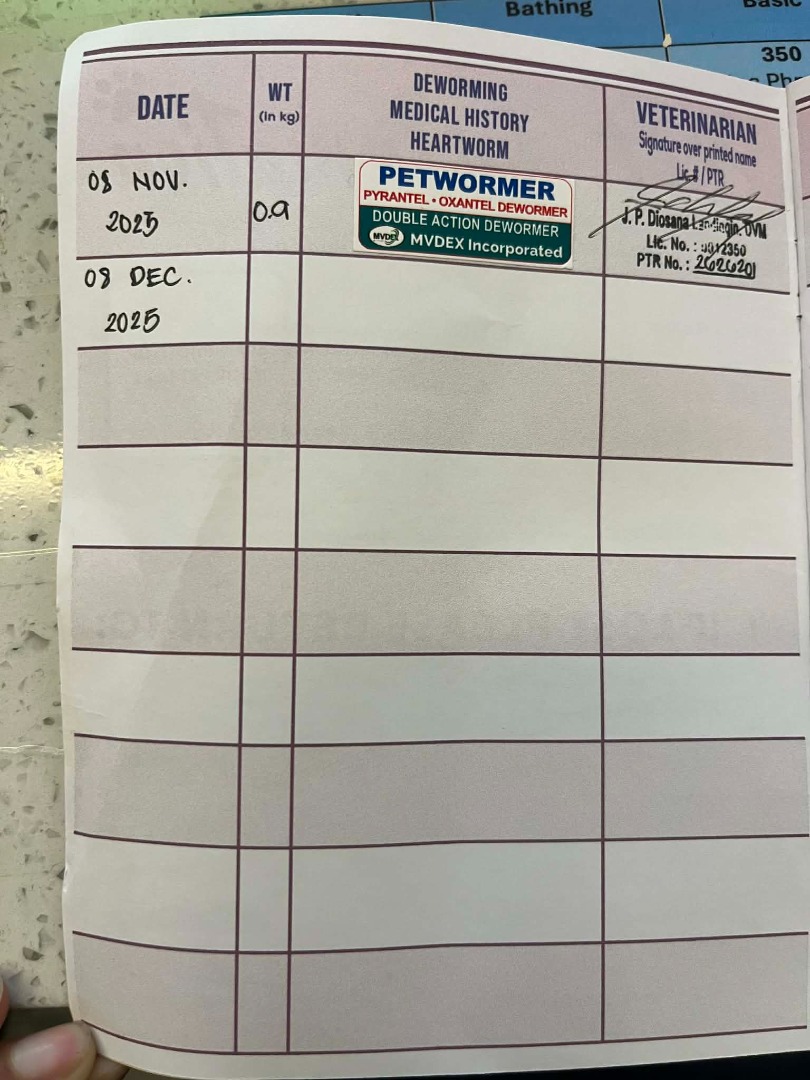 Bathing
Basic
350
DATE
WT
(in kg)
DEWORMING
MEDICAL HISTORY
HEARTWORM
VETERINARIAN
Signature over printed name
Lic.# / PTR
08 NOV.
2025
0.9
PETWORMER
PYRANTEL • OXANTEL DEWORMER
DOUBLE ACTION DEWORMER
MVDEX
MVDEX Incorporated
J. P. Diosana DVM
Lic. No. :
PTR No. : 2626201
08 DEC.
2025